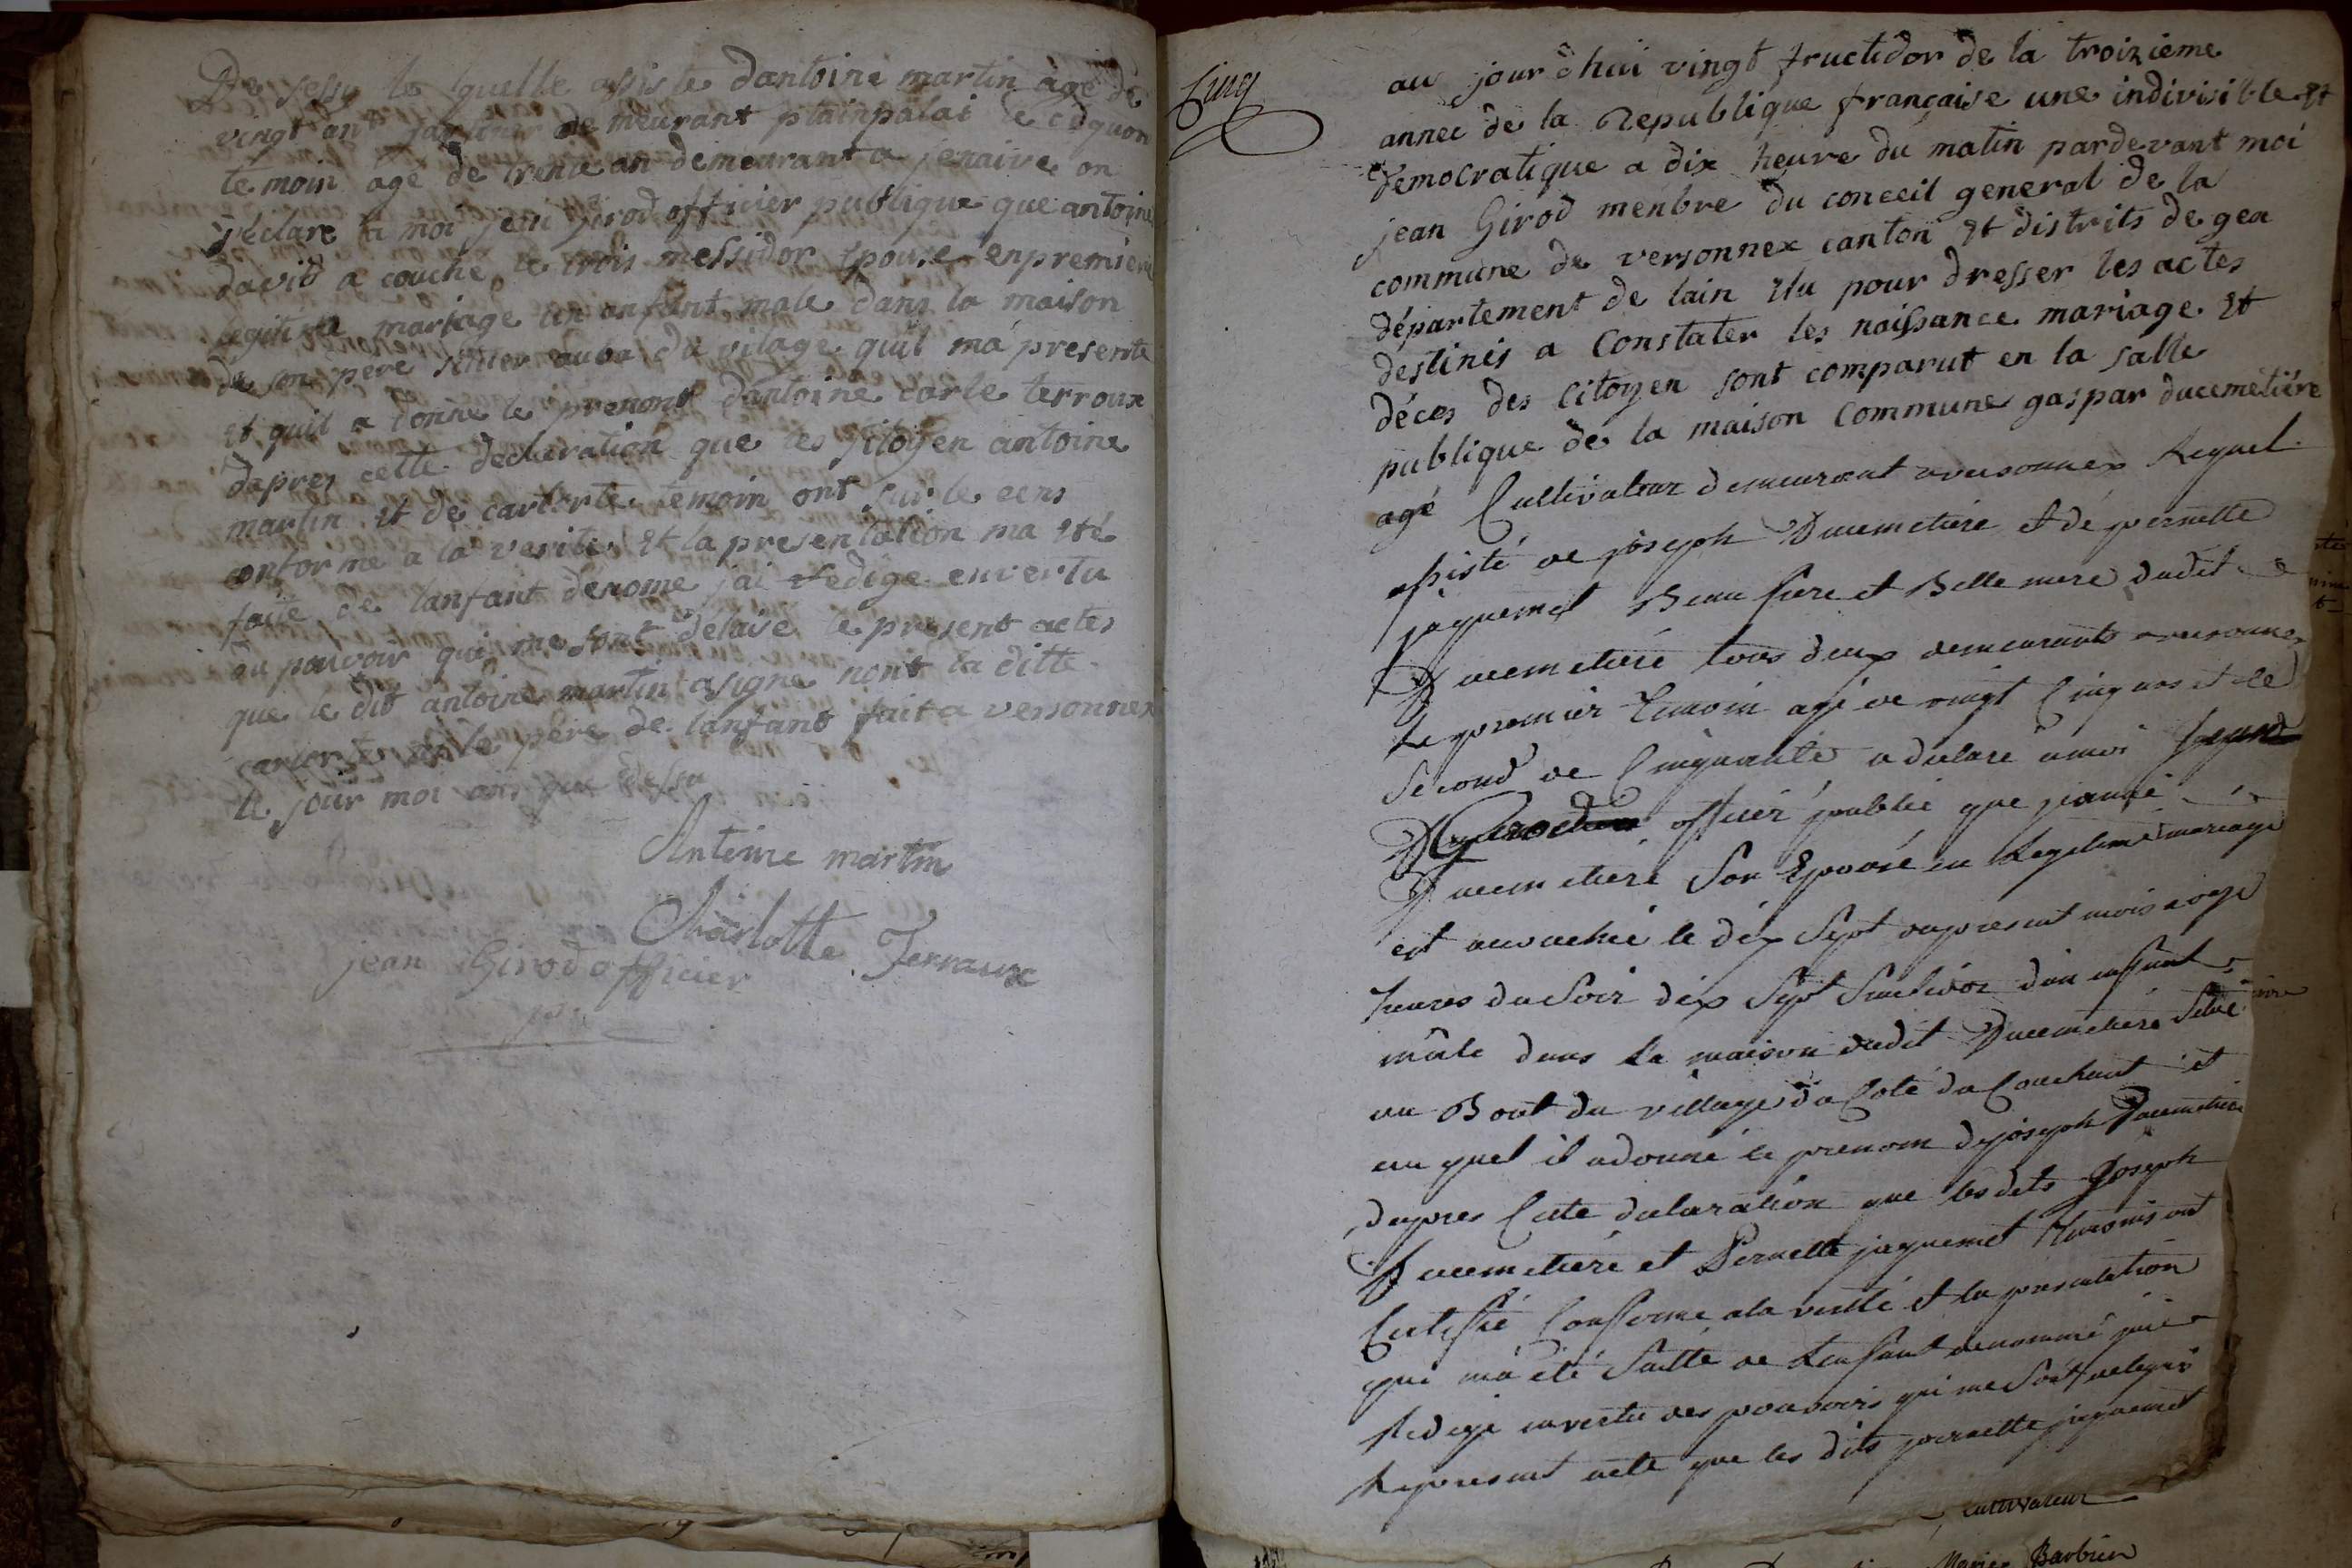 De sesu le quelle assiste dantoine martin agé de
vingt ans demeurant plainpalai le segon
temoin agé de trente an demeurant a on
déclare a moi jean girod officier publique que antoine
david a couché le trois messidor epouse enpremiere
legitime mariage un anfant male dans la maison
de son pere du vilage quil má presente
et quil a donne le prenont dantoine carle terroux
dapres cette declaration que les sitoyen antoine
martin et de carlorte temoin ont
conforme a la verite et la presentation ma été
faite de lanfant denome jai redige envertu
du pouvoir qui me sont delaive le present actes
que le dit antoine martin a signe nont la ditte
carlorte le pere de lanfant fait a versonnex
le jour moi ans que dessu
Antoine martin
Charlotte Terraux
jean Girod officier
Cinq
au jour dhui vingt fructidor de la troizieme
annee de la Republique française une indivisible et
democratique a dix heure du matin pardevant moi
jean Girod menbre du conceil general de la
commune de versonnex canton et distrits de gex
département de lain élu pour dresser les actes
destinés a Constater les naissance mariage et
déces des Citoyen sont comparut en la salle
publique de la maison Commune gaspar ducemetiére
agé Cultivateur demeurant a versonnex Lequel
assisté de joseph Ducemetiere et de pernette
jaquemet Beau frere et Belle mere dudit
Ducemetiere tous deux demeurants a versonnex
Le premier Temoin agé de vingt Cinq ans et le
Second de Cinquante a declaré a moi
officier public que jeanne
Ducemetiere Son Epouse en Legitime mariage
est accouchée le dix Sept du present mois a onze
heures du Soir dix Sept fructidor d'un enfant
mâle dans la maison dudit Ducemetiere Situé
au Bout du village du Coté du Couchant et
au quel il a donné le prenom de joseph Ducemetiere
dapres Cette declaration que les dits Joseph
Ducemetiere et Pernette jaquemet Temoins ont
Certiffié Conforme a la verité et la presentation
qui má été faitte de Lenfant denommé jai
Redigé en vertu des pouvoirs qui me Sont delegués
Le present acte que les dits pernette jaquemet
cultivateur
Barbier